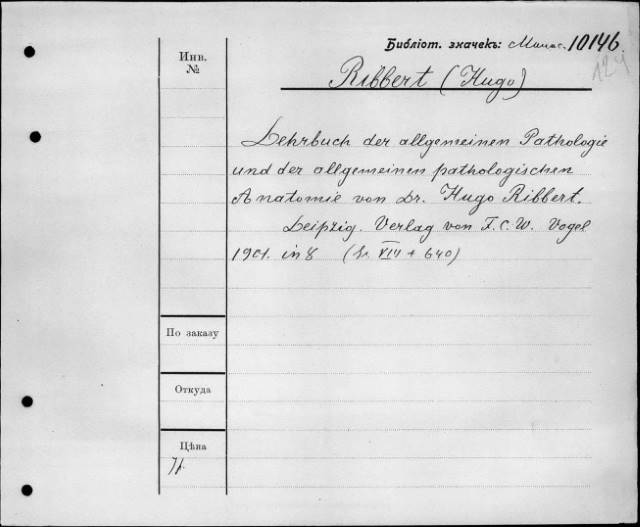 Библіот. значекъ: 10146.
124
Инв.
№
Ribbert (Hugo)
Lehrbuch der allgemeinen Pathologie
und der allgemeinen pathologischen
Anatomie von Dr. Hugo Ribbert.
Leipzig. Verlag von F. C. W. Vogel
1901. in 8 ( VIII + 640)
По заказу
Откуда
Цѣна